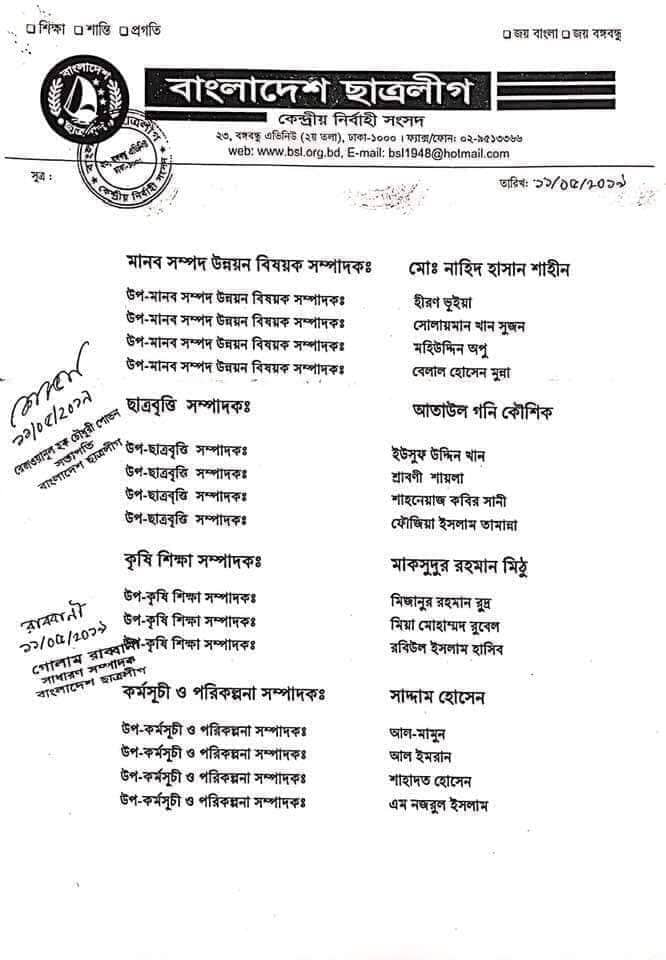 □ শিক্ষা □ শান্তি □ প্রগতি
□ জয় বাংলা □ জয় বঙ্গবন্ধু
বাংলাদেশ ছাত্রলীগ
বাংলাদেশ ছাত্রলীগ
কেন্দ্রীয় নির্বাহী সংসদ
২৩, বঙ্গবন্ধু এভিনিউ (২য় তলা), ঢাকা-১০০০ । ফ্যাক্স/ফোন: ০২-৯৫১৩৩৬৬
web: www.bsl.org.bd, E-mail: bsl1948@hotmail.com
সূত্র :
তারিখ: ১১/০৫/২০১৯
মানব সম্পদ উন্নয়ন বিষয়ক সম্পাদকঃ মোঃ নাহিদ হাসান শাহীন
উপ-মানব সম্পদ উন্নয়ন বিষয়ক সম্পাদকঃ হীরণ ভূইয়া
উপ-মানব সম্পদ উন্নয়ন বিষয়ক সম্পাদকঃ সোলায়মান খান সুজন
উপ-মানব সম্পদ উন্নয়ন বিষয়ক সম্পাদকঃ মহিউদ্দিন অপু
উপ-মানব সম্পদ উন্নয়ন বিষয়ক সম্পাদকঃ বেলাল হোসেন মুন্না
ছাত্রবৃত্তি সম্পাদকঃ আতাউল গনি কৌশিক
উপ-ছাত্রবৃত্তি সম্পাদকঃ ইউসুফ উদ্দিন খান
উপ-ছাত্রবৃত্তি সম্পাদকঃ শ্রাবণী শায়লা
উপ-ছাত্রবৃত্তি সম্পাদকঃ শাহনেয়াজ কবির সানী
উপ-ছাত্রবৃত্তি সম্পাদকঃ ফৌজিয়া ইসলাম তামান্না
১১/০৫/২০১৯
রেজওয়ানুল হক চৌধুরী শোভন
সভাপতি
বাংলাদেশ ছাত্রলীগ
কৃষি শিক্ষা সম্পাদকঃ মাকসুদুর রহমান মিঠু
উপ-কৃষি শিক্ষা সম্পাদকঃ মিজানুর রহমান রুদ্র
উপ-কৃষি শিক্ষা সম্পাদকঃ মিয়া মোহাম্মদ রুবেল
উপ-কৃষি শিক্ষা সম্পাদকঃ রবিউল ইসলাম হাসিব
রাব্বানী
১১/০৫/২০১৯
গোলাম রাব্বানী
সাধারণ সম্পাদক
বাংলাদেশ ছাত্রলীগ
কর্মসূচী ও পরিকল্পনা সম্পাদকঃ সাদ্দাম হোসেন
উপ-কর্মসূচী ও পরিকল্পনা সম্পাদকঃ আল-মামুন
উপ-কর্মসূচী ও পরিকল্পনা সম্পাদকঃ আল ইমরান
উপ-কর্মসূচী ও পরিকল্পনা সম্পাদকঃ শাহাদত হোসেন
উপ-কর্মসূচী ও পরিকল্পনা সম্পাদকঃ এম নজরুল ইসলাম